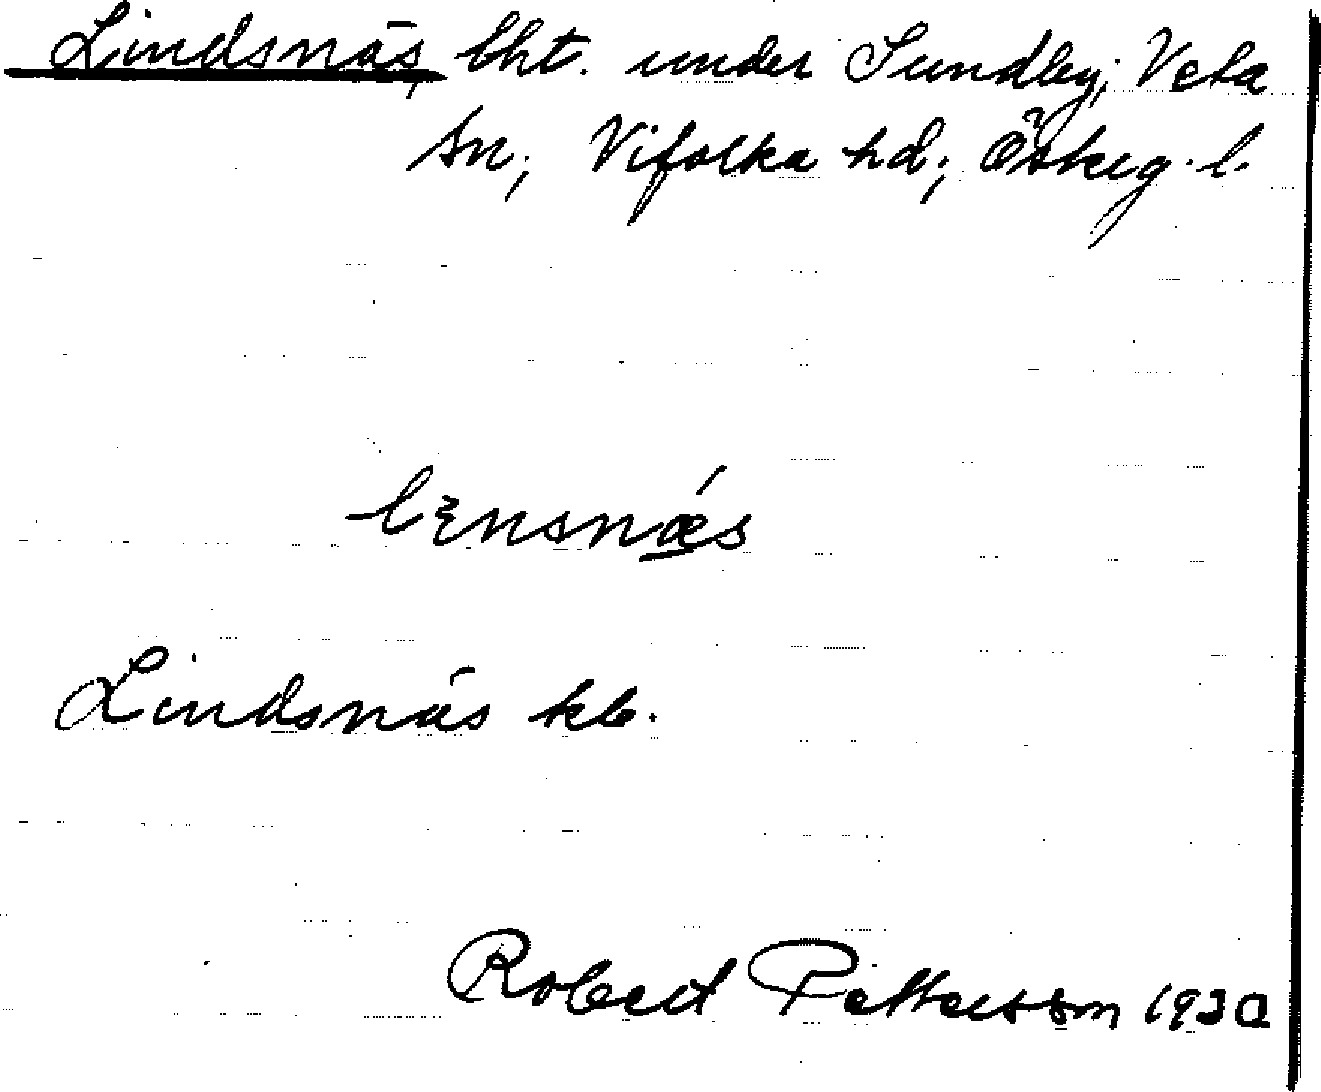 Lindsnäs, lht. under Sundby, Veta
sn, Vifolka hd, Östeg. l.
lensnæs
Lindsnäs kb.
Robert Pettersson 1930